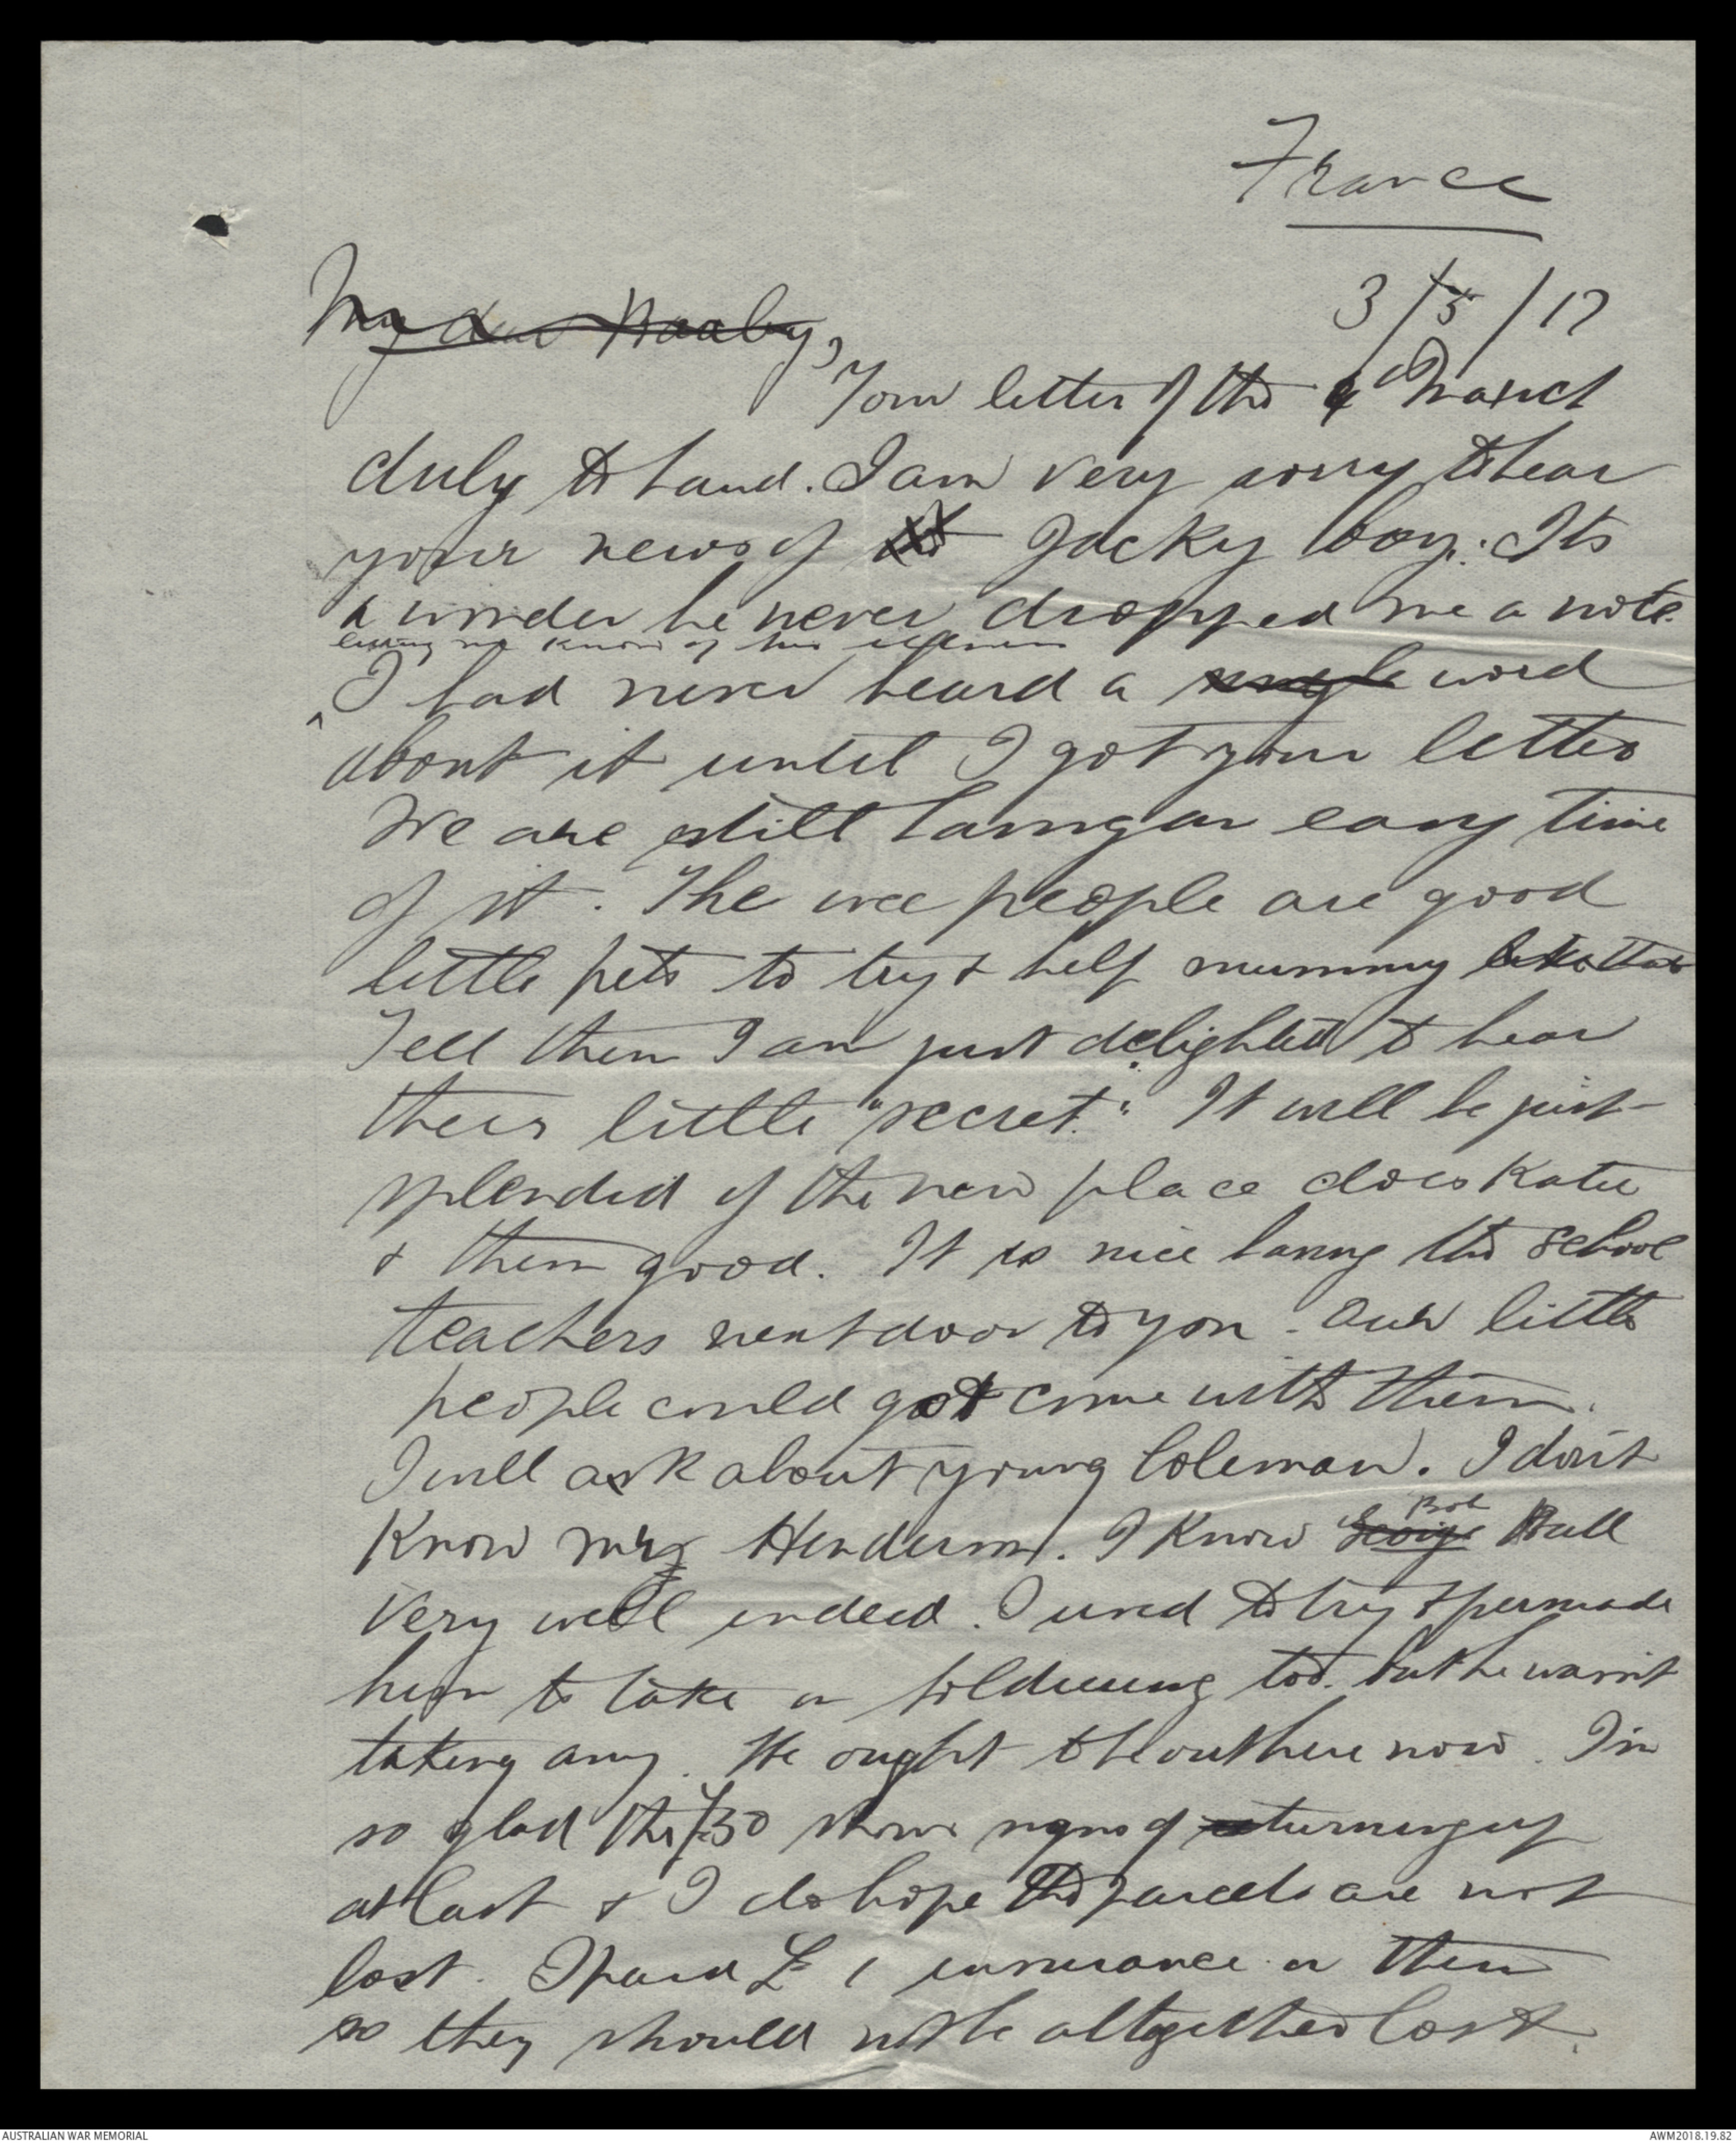 France
3/5/17
My dear Maaby,
Your letter of the 4th March
duly to hand. I am very sorry to hear
your news of Jacky boy. Its
a wonder he never dropped me a note.
letting me know of his illness
I had never heard a single word
about it until I got your letter
We are still having an easy time
of it. The wee people are good
little pets to try & help mummy like that
Tell them I am just delighted to hear
their little "secret." It will be just
splendid if the new place does Katie
& them good. It is nice having the school
teachers next door to you. Our little
people could get come with them.
I will ask about young Coleman. I don't
Know Henderson. I Know George Bob Bull
very well indeed. I used to try & persuade
him to take on soldiering too. but he wasn't
taking any. He ought to be out here now. I'm
so glad the £30 shows signs of turning up
at last & I do hope the parcels are not
lost. I paid £1 insurance on them
so they should not be altogether lost.
AUSTRALIAN WAR MEMORIAL
AWM2018.19.82